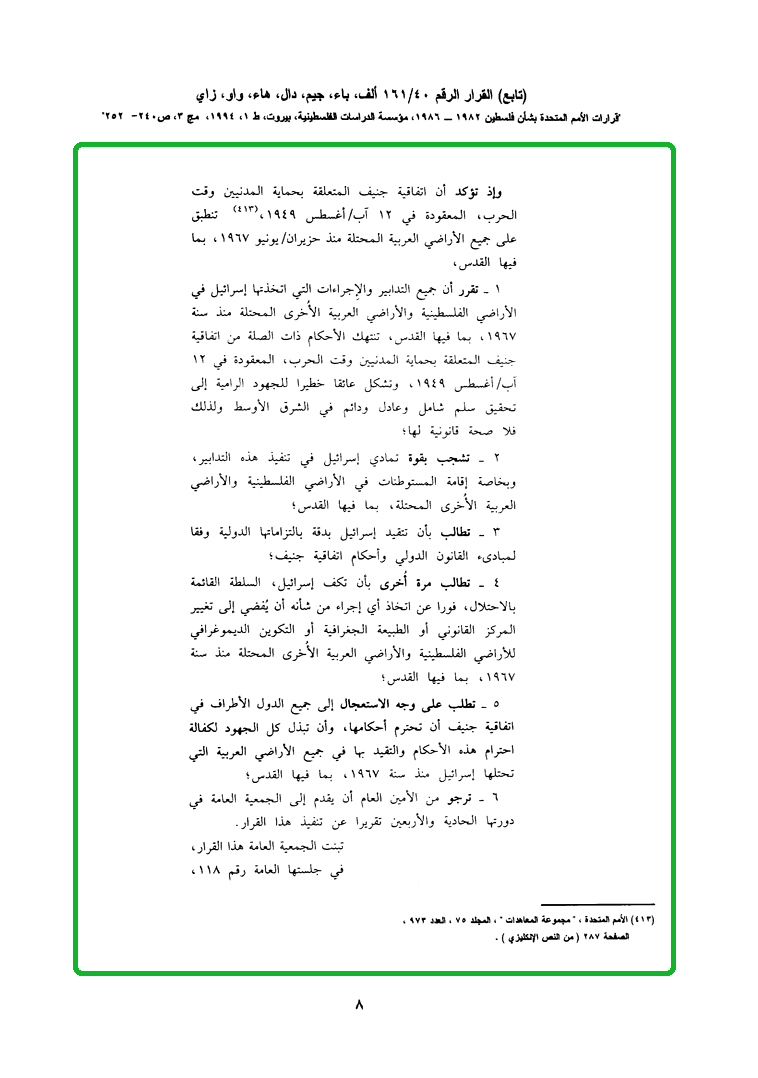 (تابع) القرار الرقم ١٦١/٤٠ ألف، باء، جيم، دال، هاء، واو، زاي
"قرارات الأمم المتحدة بشأن فلسطين ١٩٨٢ ـ ١٩٨٦، مؤسسة الدراسات الفلسطينية، بيروت، ط ١، ١٩٩٤، مج ٣، ص٢٤٠- ٢٥٢"
وإذ تؤكد أن اتفاقية جنيف المتعلقة بحماية المدنيين وقت
الحرب، المعقودة في ١٢ آب/أغسطس ١٩٤٩،(٤١٣) تنطبق
على جميع الأراضي العربية المحتلة منذ حزيران/يونيو ١٩٦٧، بما
فيها القدس،
١ ـ تقرر أن جميع التدابير والإجراءات التي اتخذتها إسرائيل في
الأراضي الفلسطينية والأراضي العربية الأُخرى المحتلة منذ سنة
١٩٦٧، بما فيها القدس، تنتهك الأحكام ذات الصلة من اتفاقية
جنيف المتعلقة بحماية المدنيين وقت الحرب، المعقودة في ١٢
آب/أغسطس ١٩٤٩، وتشكل عائقا خطيرا للجهود الرامية إلى
تحقيق سلم شامل وعادل ودائم في الشرق الأوسط ولذلك
فلا صحة قانونية لها؛
٢ ـ تشجب بقوة تمادي إسرائيل في تنفيذ هذه التدابير،
وبخاصة إقامة المستوطنات في الأراضي الفلسطينية والأراضي
العربية الأُخرى المحتلة، بما فيها القدس؛
٣ ـ تطالب بأن تتقيد إسرائيل بدقة بالتزاماتها الدولية وفقا
لمبادىء القانون الدولي وأحكام اتفاقية جنيف؛
٤ ـ تطالب مرة أُخرى بأن تكف إسرائيل، السلطة القائمة
بالاحتلال، فورا عن اتخاذ أي إجراء من شأنه أن يُفضي إلى تغيير
المركز القانوني أو الطبيعة الجغرافية أو التكوين الديموغرافي
للأراضي الفلسطينية والأراضي العربية الأُخرى المحتلة منذ سنة
١٩٦٧، بما فيها القدس؛
٥ ـ تطلب على وجه الاستعجال إلى جميع الدول الأطراف في
اتفاقية جنيف أن تحترم أحكامها، وأن تبذل كل الجهود لكفالة
احترام هذه الأحكام والتقيد بها في جميع الأراضي العربية التي
تحتلها إسرائيل منذ سنة ١٩٦٧، بما فيها القدس؛
٦ ـ ترجو من الأمين العام أن يقدم إلى الجمعية العامة في
دورتها الحادية والأربعين تقريرا عن تنفيذ هذا القرار.
تبنت الجمعية العامة هذا القرار،
في جلستها العامة رقم ١١٨،
(٤١٣) الأمم المتحدة ، " مجموعة المعاهدات " ، المجلد ٧٥ ، العدد ٩٧٣ ،
الصفحة ٢٨٧ ( من النص الإنكليزي ) .
٨